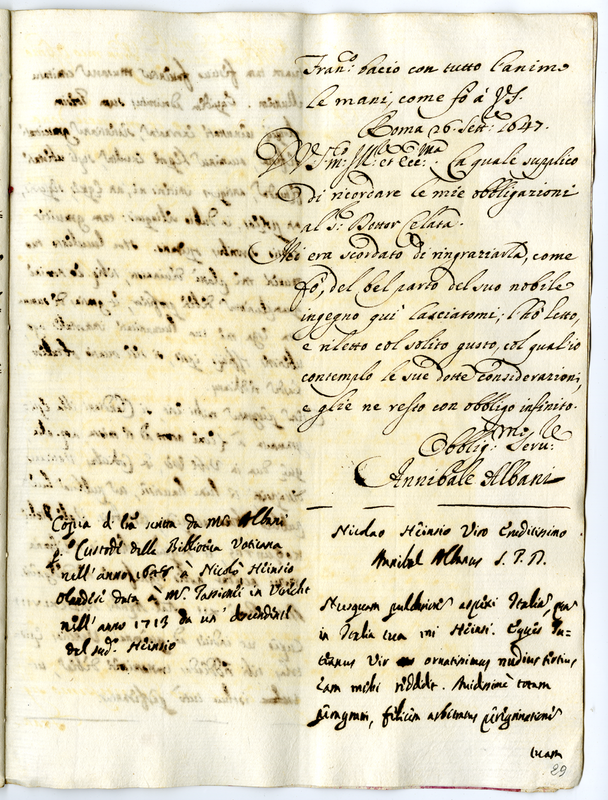 Fran.º bacio con tutto l'animo
le mani, come fò à V.S.
Roma 26. Sett.e 1647.
D.V.S. m.to Ill.e et Ecc.ma. La quale supplico
di ricordare le mie obbligazioni
al S.r Dottor Celata.
Mi era scordato di ringraziarla, come
fò, del bel parto del suo nobile
ingegno qui lasciatomi; l'hò letto,
e riletto col solito gusto, col qual'io
contemplo le sue dotte considerazioni,
e gli e ne resto con obbligo infinito.
Obblig.mo Seru.e
Annibale Albani
Copia di l'ra scritta da M.r Albani
p.º Custode della Biblioteca Vaticana
nell'anno 1648 à Nicolò Heinsio
Olandese data à M.r Passionei in Utrecht
nell'anno 1713 da un' descendente
del sud.º Heinsio
Nicolao Heinsio Viro Eruditissimo
Annibal Albanus S. P. D.
Nusquam pulchrior aspexi Italia, quam
in Italia tua mi Heinsi. Equis Lu-
cianus Vir ornatissimus nudius tertius
eam mihi reddidit. Avidissimè totam
peragravi, felicem arbitratus peregrinationem
tuam
89